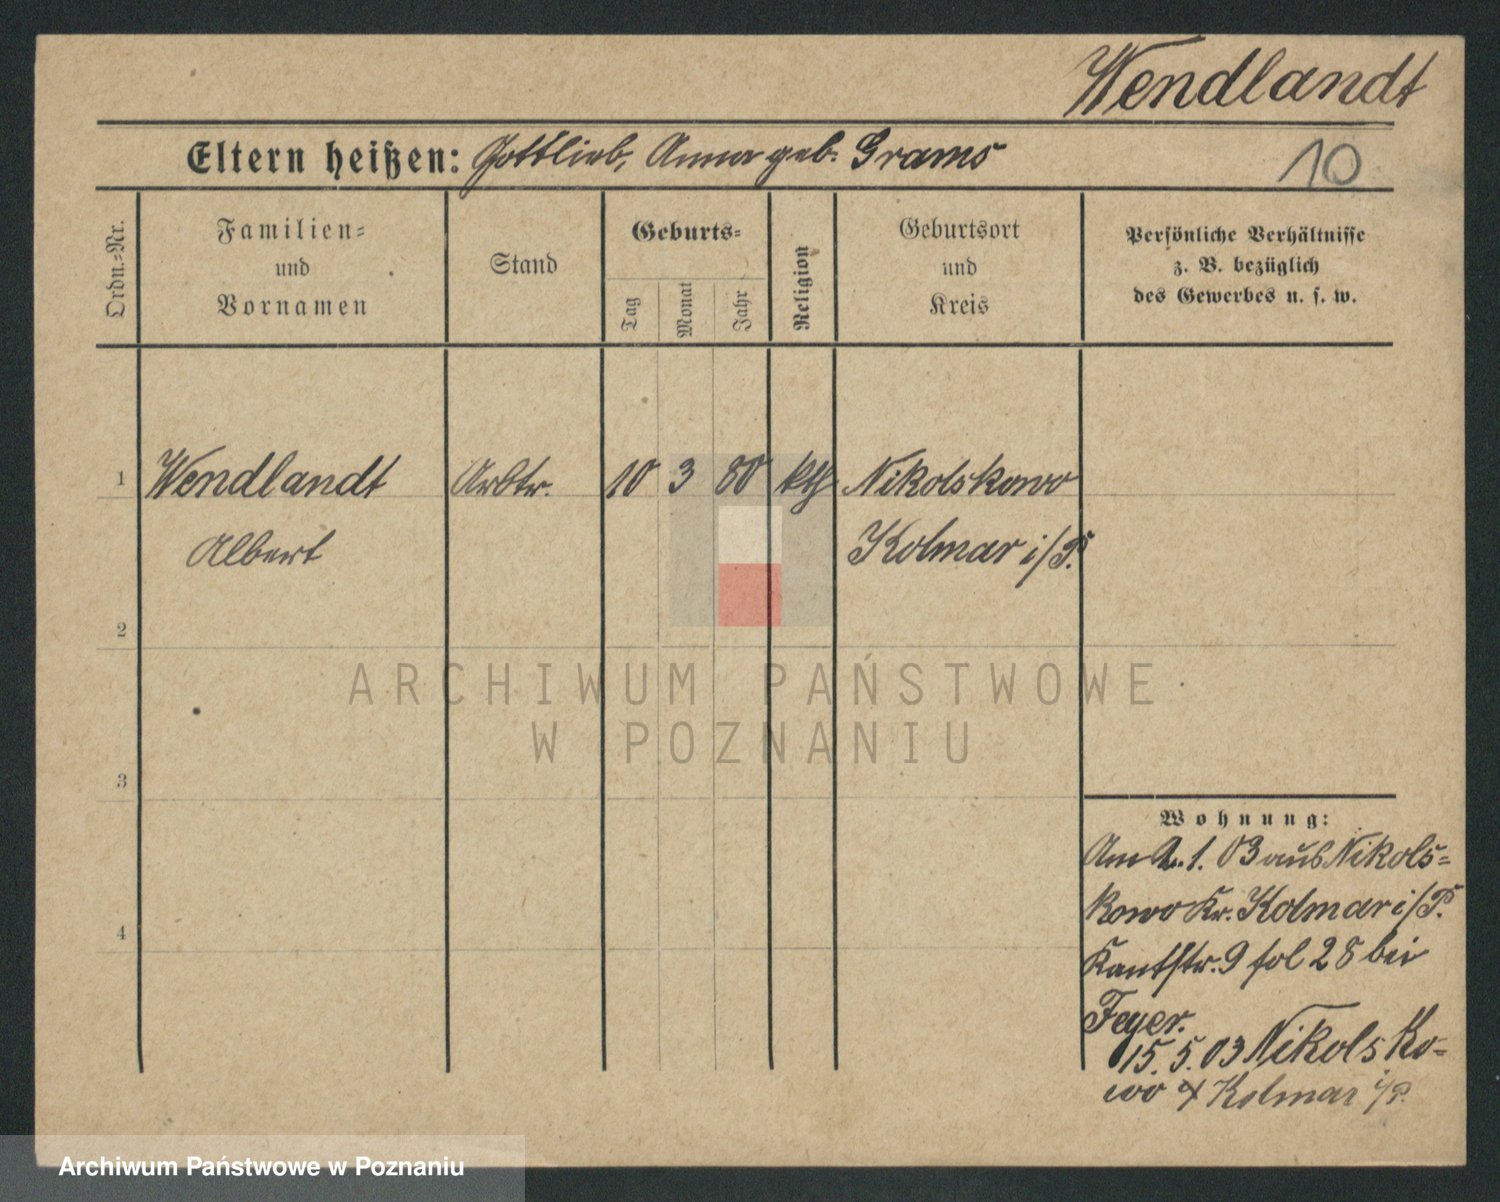 Wendlandt
Eltern heißen: Gottlieb, Anna geb. Grams
10
Ordn.-Nr.
Familien-
und
Vornamen
Stand
Geburts-
Tag
Monat
Jahr
Religion
Geburtsort
und
Kreis
Persönliche Verhältnisse
z. B. bezüglich
des Gewerbes u. s. w.
1 Wendlandt Arbtr. 10 3 80 kth Nikolskowo
Albert Kolmar i/P.
2
ARCHIWUM PAŃSTWOWE
W POZNANIU
3
Wohnung:
Am 2. 1. 03 aus Nikols-
kowo Kr. Kolmar i/P.
4
Kantstr. 9 fol 28 bei
Feyer.
15. 5. 03 Nikolsko-
wo Kolmar i/P.
Archiwum Państwowe w Poznaniu